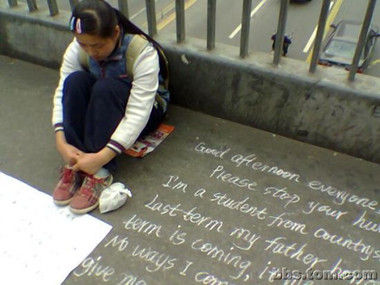 Good afternoon everyone
Please stop your
I'm a student from countrys
Last term my father
term is coming, I
No ways I
give me
bbs.tom.com